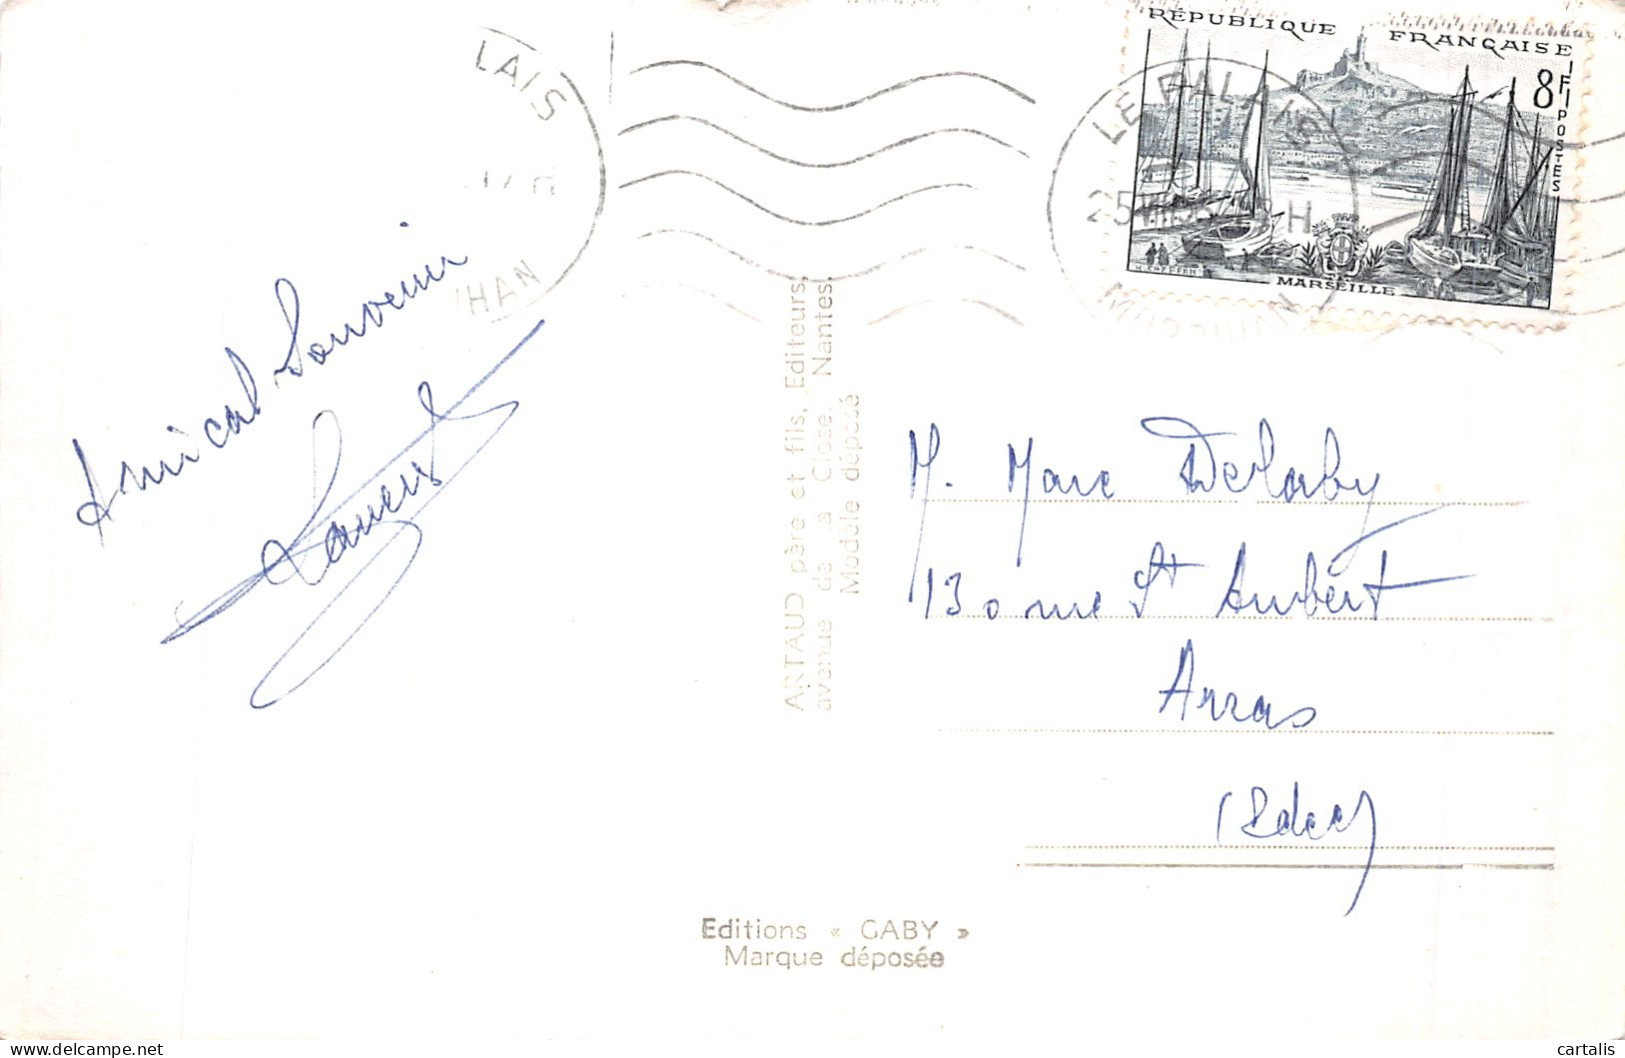 LAIS
HAN
RÉPUBLIQUE FRANÇAISE
8F
POSTES
LE PALAIS
MORBIHAN
MARSEILLE
Amical Souvenir
ARTAUD père et fils, Editeurs,
avenue de la Close, Nantes.
Modèle déposé
M. Marc Delaby
13 rue St Aubert
Arras
(Pdec)
Editions « GABY »
Marque déposée
cartalis